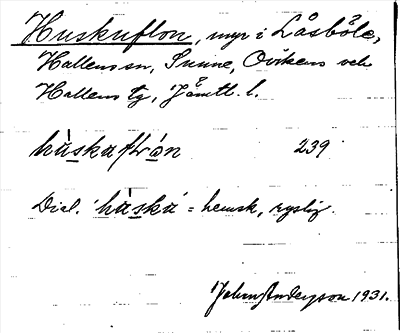 Huskuflon, myr i Låsböle,
Hallens sn, Sunne, Ovikens och
Hallens tg, Jämtl. l.
håskaflŏn 239
Dial. 'håska' = hemsk, ryslig.
John Anderson 1931.